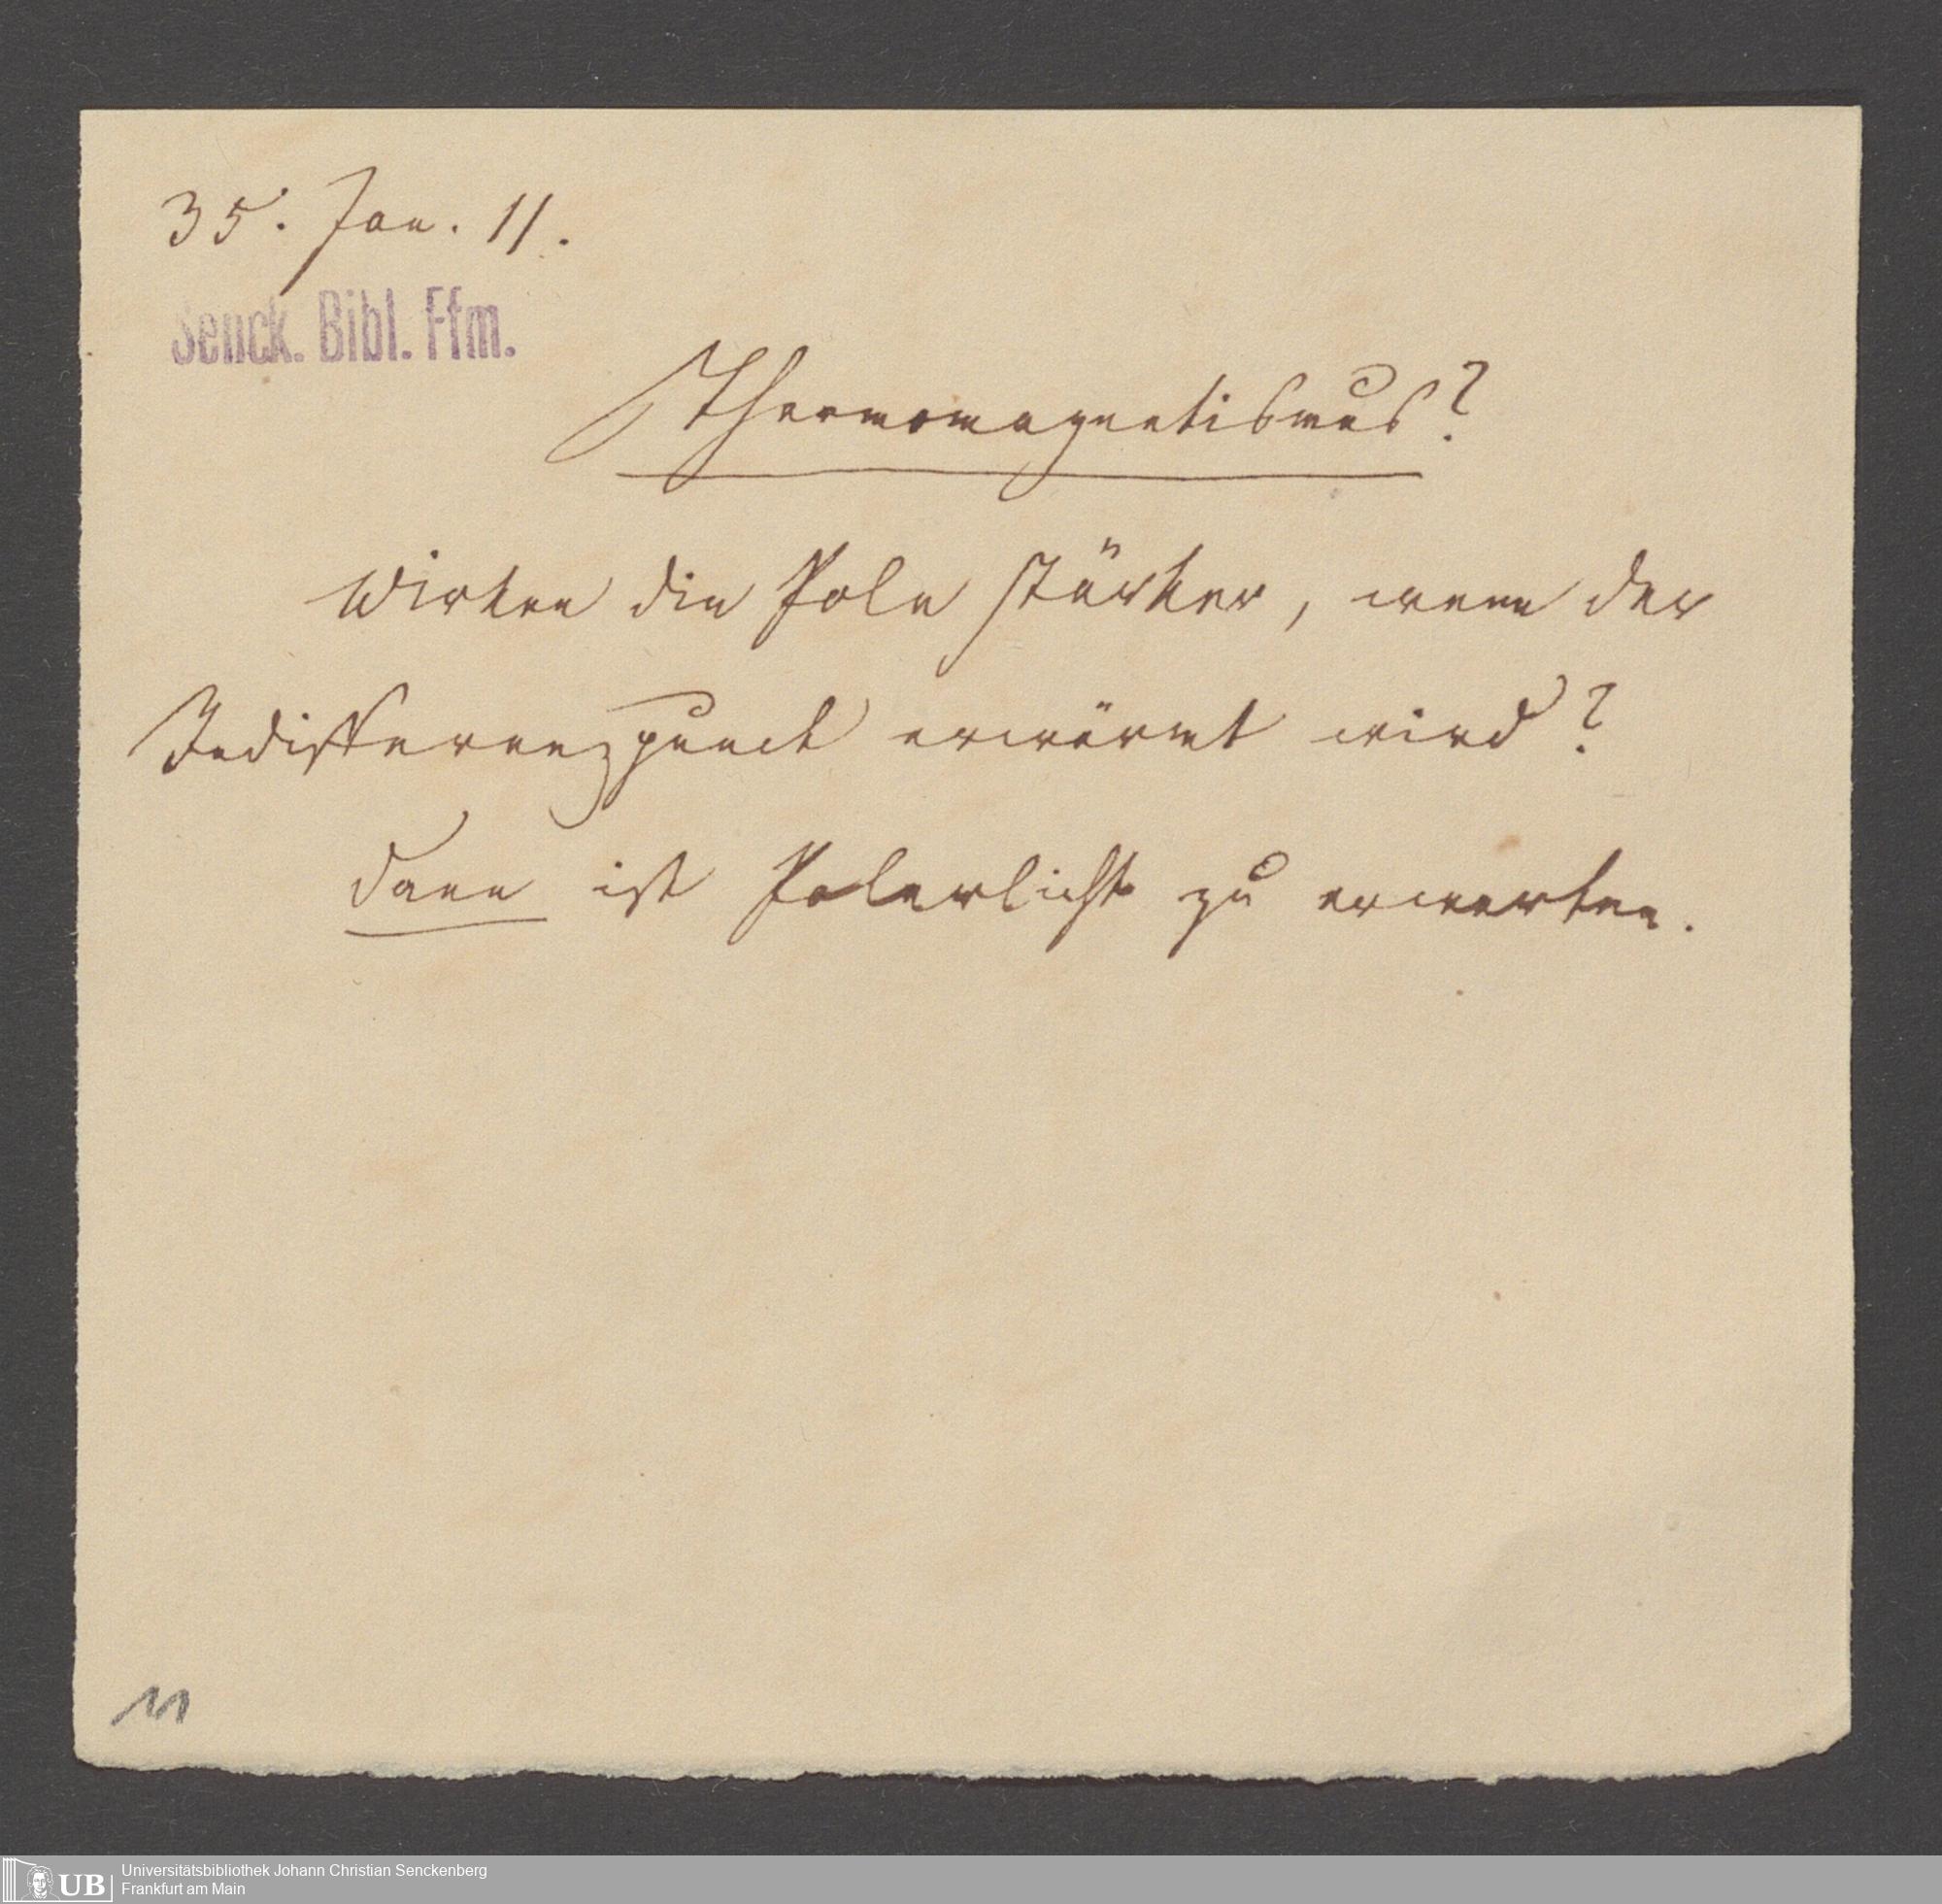 35. Jan. 11.
Senck. Bibl. Ffm.
Thermomagnetismus?
Wirken die Pole stärker, wenn der
Indifferenzpunct erwärmt wird?
Dann ist Polarlicht zu erwarten.
11
UB
Universitätsbibliothek Johann Christian Senckenberg
Frankfurt am Main